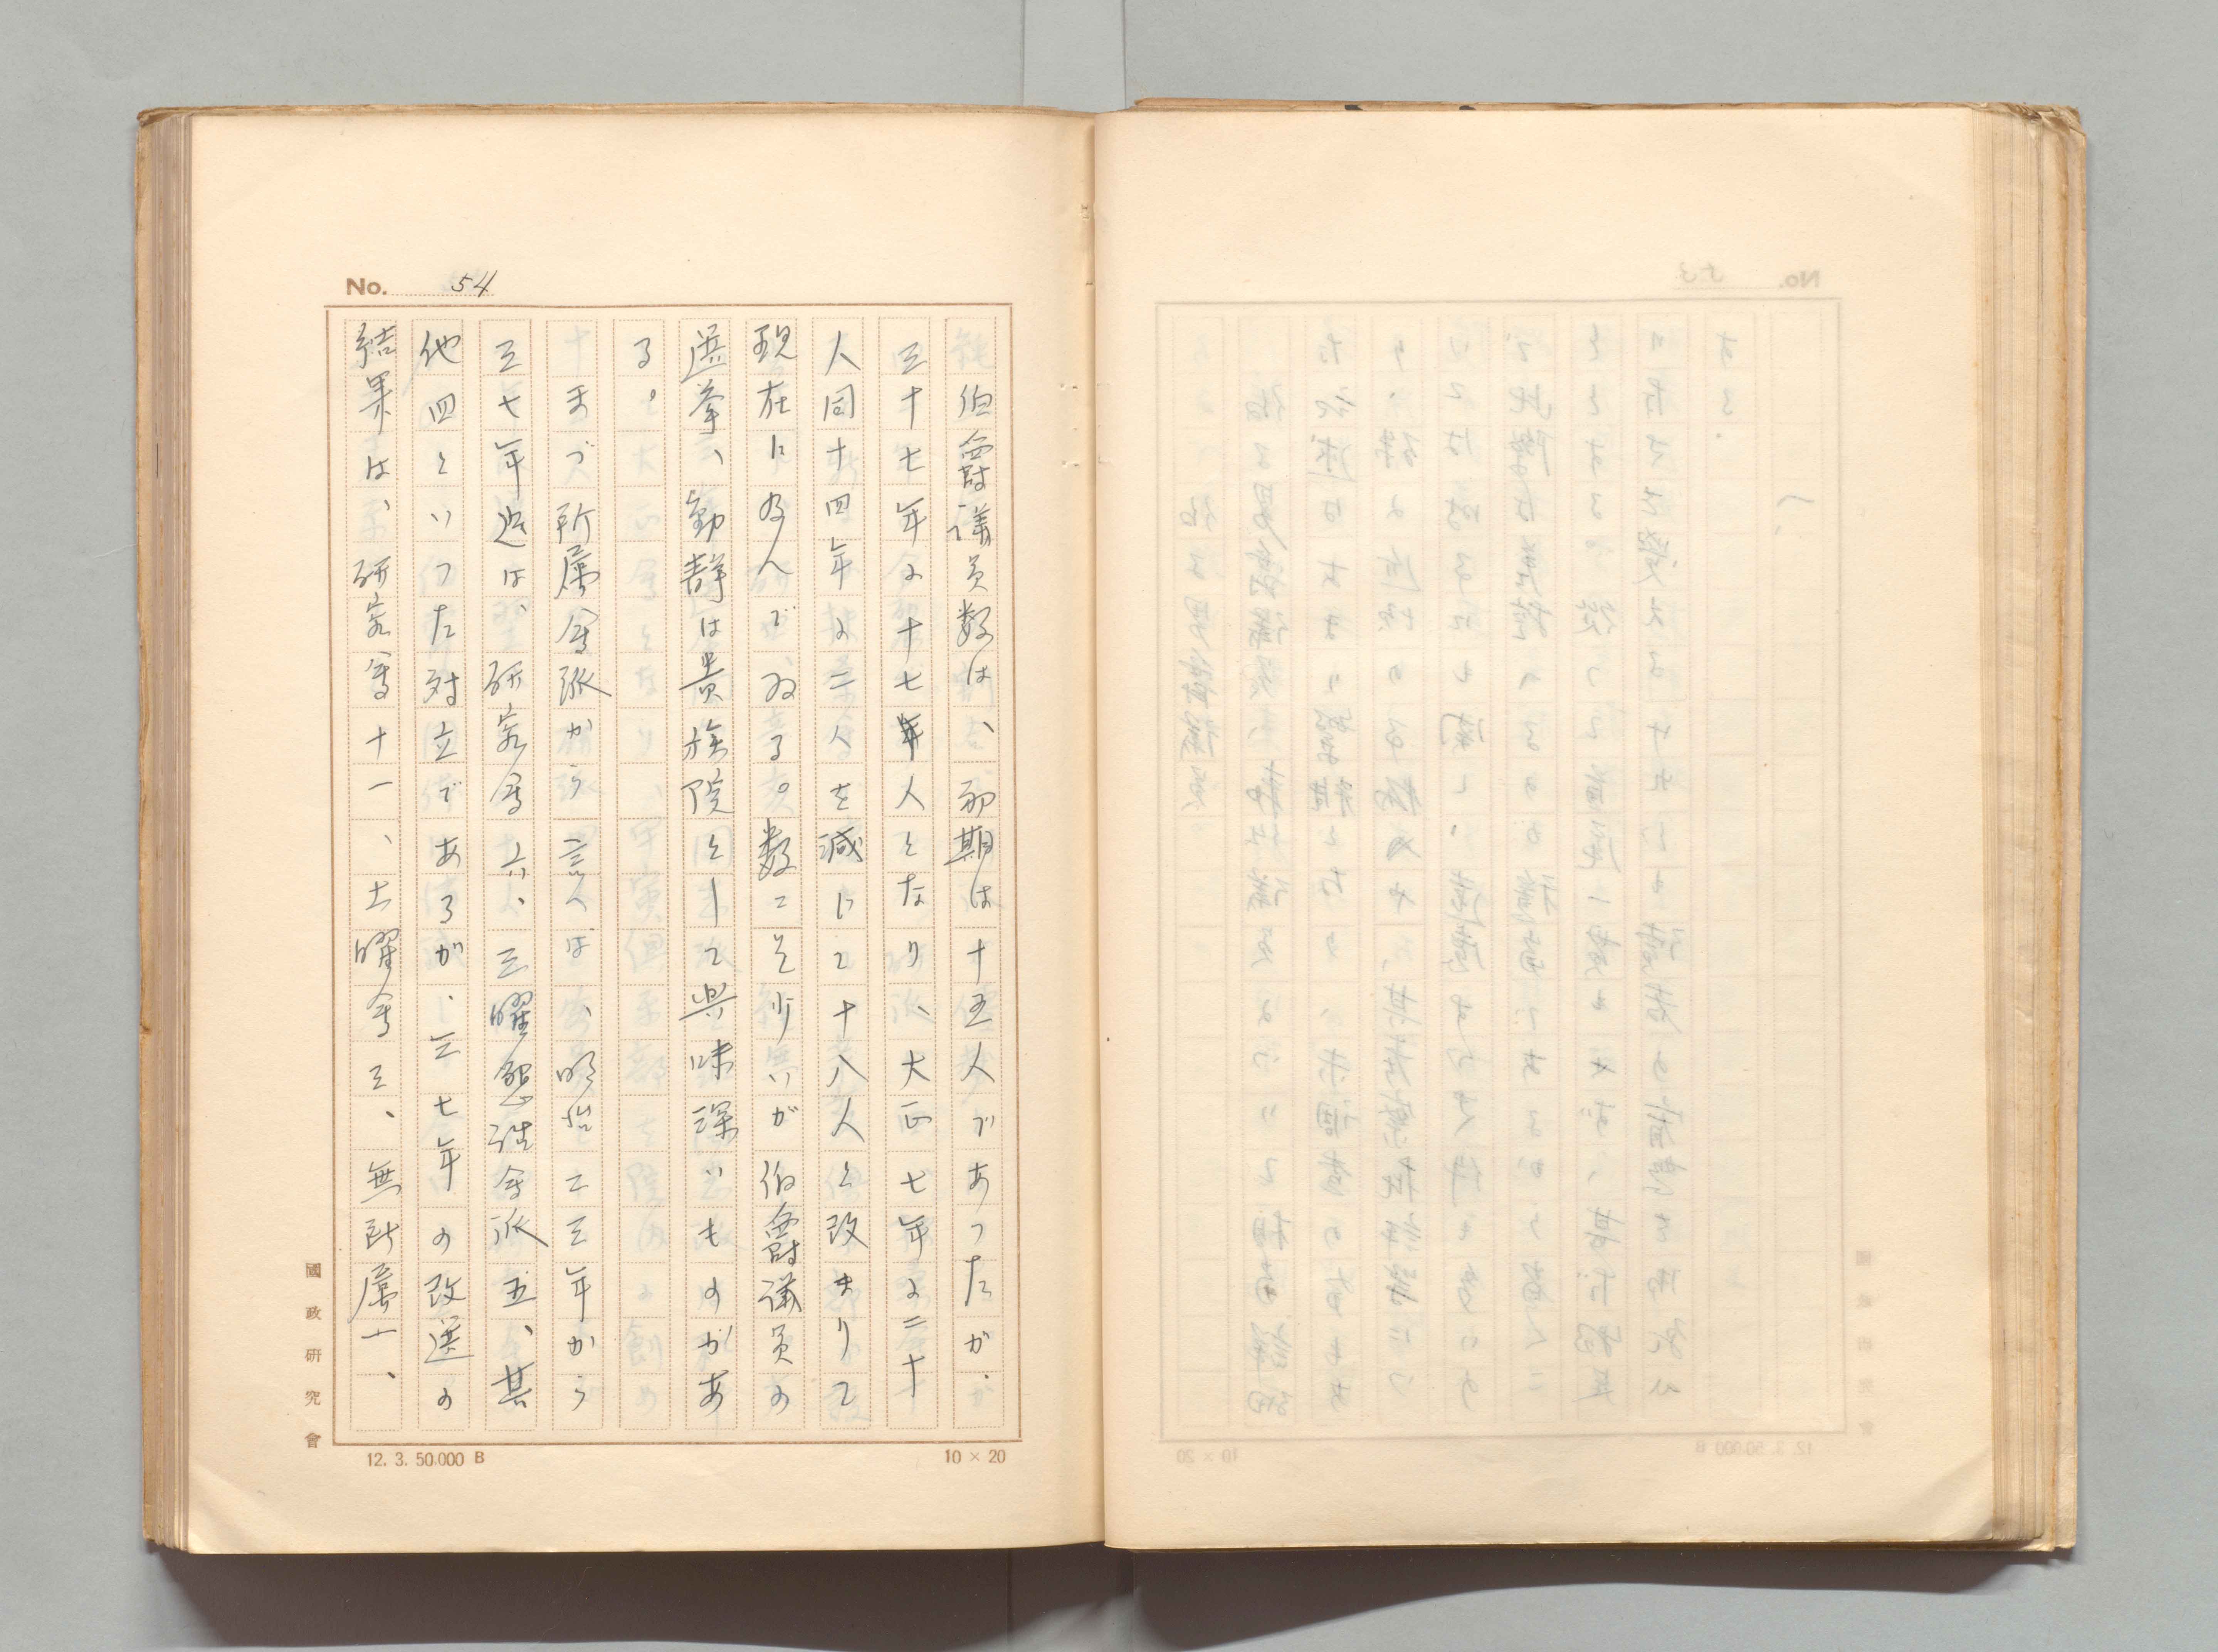 No. 54
伯爵議員数は、初期は十五人であつたが、
三十七年に十七人となり、大正七年に二十
人同十四年に二人を減じて十八人と改まりて
現在に及んでゐる。数こそ少いが伯爵議員の
選挙、動静は貴族院として興味深いものがあ
る。
まづ所属会派から言へば、明治二三年から
三七年迄は、研究会六、三曜懇話会派五、其
他四といつた対立であるが、三七年の改選の
結果は、研究会十一、土曜会三、無所属一、
國政研究會
12. 3. 50.000 B
10 × 20